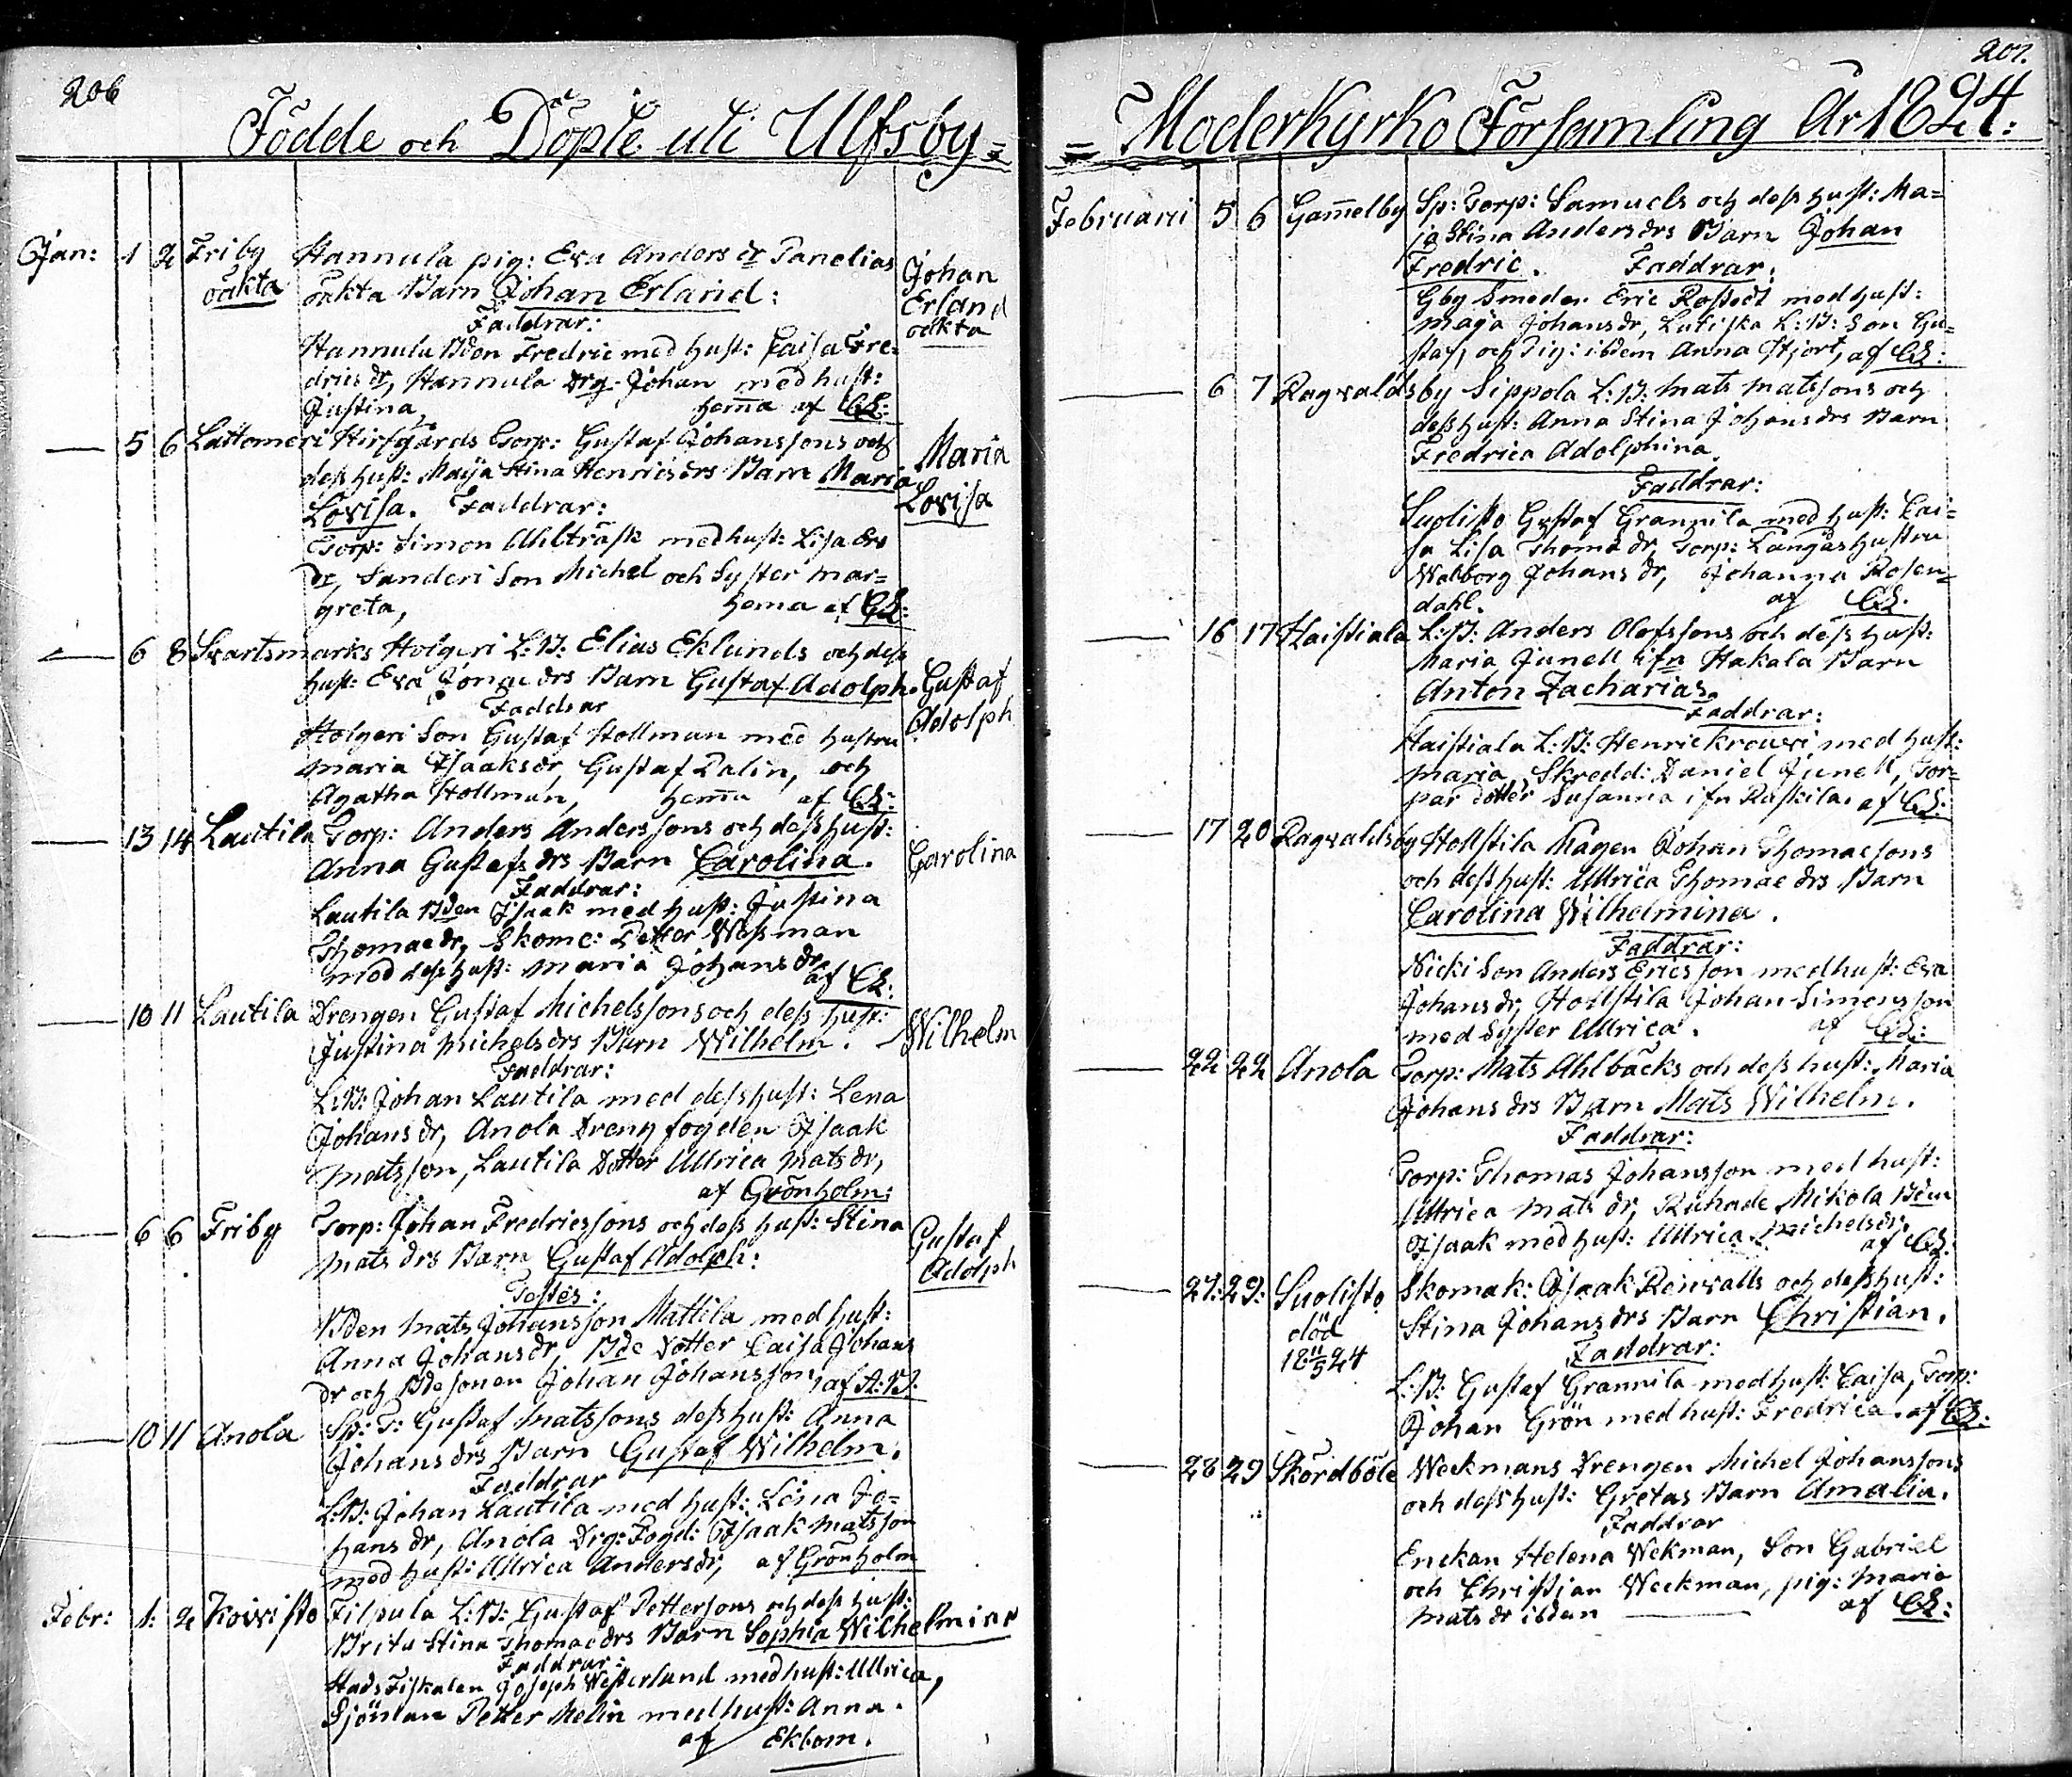 206
Födde och Döpte uti Ulfsby=
Jan: 1 2 Friby Hannula pig: Eva Anders dr Panelias Johan
oäkta oäkta Barn Johan Erland: Erland
Faddrar: oäkta
Hannula Bdon Fredric med hust: Caisa Fre-
drics dr, Hannula Drg: Johan med hust:
Justina, hema af CE:
— 5 6 Lattomeri Hirfgårds Torp: Gustaf Johanssons och
dess hust: Maija Stina Henrics drs Barn Maria Maria
Lovisa. Faddrar: Lovisa
Torp: Simon Ahlträsk med hust: Lisa drs
dr, Sanderi Son Michel och Syster Mar=
greta, hema af CE:
— 6 8 Svartsmarks Holgeri L:B: Elias Eklunds och dess
hust: Eva Jonae drs Barn Gustaf Adolph. Gustaf
Faddrar Adolph
Holgeri Son Gustaf Hollman med hustru
Maria Isaaksdr, Gustaf Palin, och
Agatha Hollman, hema af CE:
— 13 14 Lautila Torp: Anders Anderssons och dess hust:
Anna Gustafs drs Barn Carolina. Carolina
Faddrar:
Lautila Bden Isaak med hust: Justina
Thomae dr, Skome: Petter Wessman
med dess hust: Maria Johans dr,
af CE:
— 10 11 Lautila Drengen Gustaf Michelssons och dess hust:
Justina Michels drs Barn Wilhelm. Wilhelm
Faddrar:
L:B: Johan Lautila med dess hust: Lena
Johans dr, Anola Dreng fogden Isaak
Matsson, Lautila Dotter Ullrica Mats dr,
af Grönholm:
— 6 6 Friby Torp: Johan Fredricssons och dess hust: Stina
Mats drs Barn Gustaf Adolph: Gustaf
Testes: Adolph
Bden Mats Johansson Mattila med hust:
Anna Johansdr, Bde Dotter Caisa Johans
dr och Bdesonen Johan Johansson, af A:B:
— 10 11 Anola Sp: T: Gustaf Matssons dess hust: Anna
Johans drs Barn Gustaf Wilhelm.
Faddrar
L:B: Johan Lautila med hust: Lena Jo=
hans dr, Anola Drg: Fogd: Isaak Matsson
med hust: Ullrica Andersdr, af Grönholm
Febr: 1: 2 Koivisto Filpula L:B: Gustaf Pettersons och dess hust:
Brita Stina Thomae drs Barn Sophia Wilhelmina
Faddrar:
Stads Fiskalen Joseph Westerlund med hust: Ullrica,
Sjöman Petter Melin med hust: Anna.
af Ekbom.
207.
= Moderkyrko Församling År 1824:
Februarii 5 6 Gamelby Sp: Torp: Samuels och dess hust: Ma=
ja Stina Anders drs Barn Johan
Fredric. Faddrar:
Gby Smeden Eric Rostedt med hust:
Maja Johansdr, Lutiska L:B: Son Gu=
staf, och Pig: ibdem Anna Hjort, af CE:
— 6 7 Ragvaldsby Sippola L:B: Mats Matssons och
dess hust: Anna Stina Johans drs Barn
Fredrica Adolphina.
Faddrar:
Suolisto Gustaf Grannila med hust: Cai=
sa Lisa Thomae dr, Torp: Långås hustru
Walborg Johans dr, Johanna Rosen=
dahl. af CE.
— 16 17 Haistiala L:B: Anders Olofssons och dess hust:
Maria Junell ifn Hakala Barn
Anton Zacharias.
Faddrar:
Haistiala L:B: Henric krouvi med hust:
Maria, Skredd: Daniel Junell, Tor=
par dotter Susanna ifn Raskila. af CE:
— 17 20 Ragvaldsby Hollstila Mågen Johan Thomaesons
och dess hust: Ullrica Thomae drs Barn
Carolina Wilhelmina.
Faddrar:
Nicki Son Anders Ericsson med hust: Eva
Johans dr, Hollstila Johan Simonsson
med Syster Ullrica. af CE:
— 22 22 Anola Torp: Mats Ahlbäcks och dess hust: Maria
Johans drs Barn Mats Wilhelm.
Faddrar:
Torp: Thomas Johansson med hust:
Ullrica Mats dr, Ruhade Mikola Bden
Isaak med hust: Ullrica Michelsdr,
af CE:
— 27: 29: Suolisto Skomak: Isaak Renvalls och dess hust:
död Stina Johans drs Barn Christian.
18 11/5 24 Faddrar:
L:B: Gustaf Grannila med hust: Caisa, Torp:
Johan Grön med hust: Fredrica. af CE:
— 28 29 Skördböle Weckmans Drengen Michel Johanssons
och dess hust: Gretas Barn Amalia.
Faddrar
Enckan Helena Wekman, Son Gabriel
och Christian Weckman, pig: Maria
Mats dr ibdem — af CE: